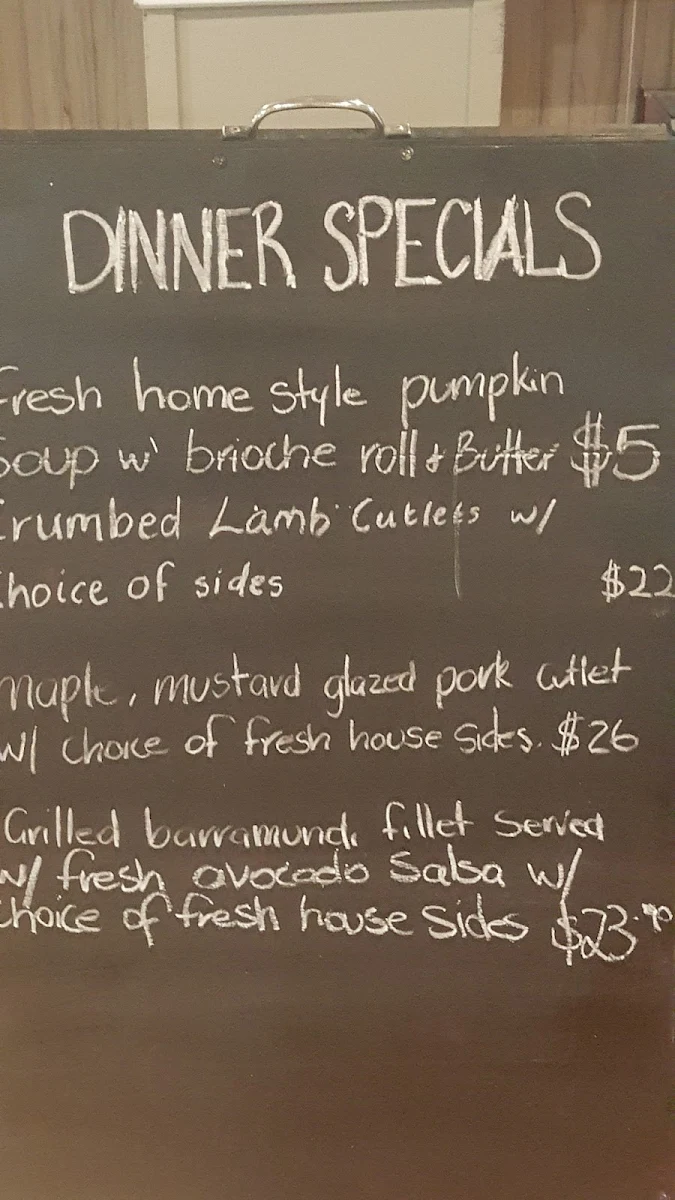 DINNER SPECIALS
Fresh home style pumpkin
Soup w' brioche roll & Butter $5
Crumbed Lamb Cutlets w/
Choice of sides $22
maple, mustard glazed pork cutlet
w/ choice of fresh house sides. $26
Grilled barramundi fillet served
w/ fresh avocado salsa w/
choice of fresh house sides $23.90